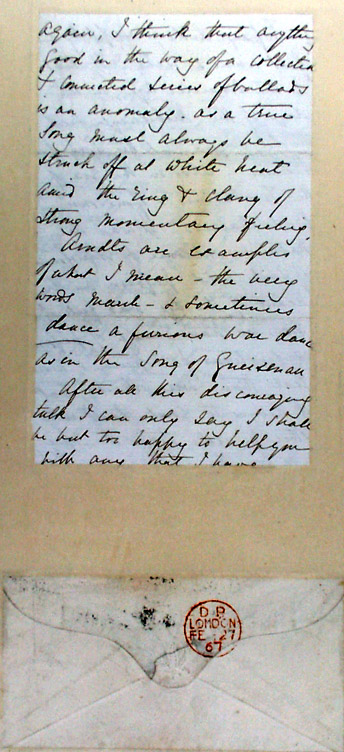 again, I think that anything
good in the way of a collected
& connected series of ballads
is an anomaly. as a true
Song must always be
struck off at white heat
amid the ring & clang of
strong momentary feeling.
Arndts are examples
of what I mean – the very
words march – & sometimes
dance a furious war dance
as in the Song of Gneisenau
After all this discouraging
talk I can only say I shall
be but too happy to help you
with any that I have
D P
LONDON
FE 27
67